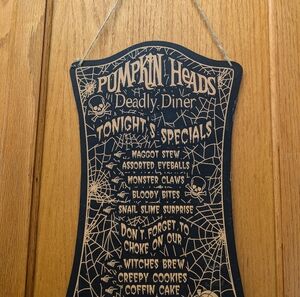 PUMPKIN HEADS
Deadly Diner
TONIGHT'S SPECIALS
MAGGOT STEW
ASSORTED EYEBALLS
MONSTER CLAWS
BLOODY BITES
SNAIL SLIME SURPRISE
DON'T FORGET TO
CHOKE ON OUR
WITCHES BREW
CREEPY COOKIES
COFFIN CAKE